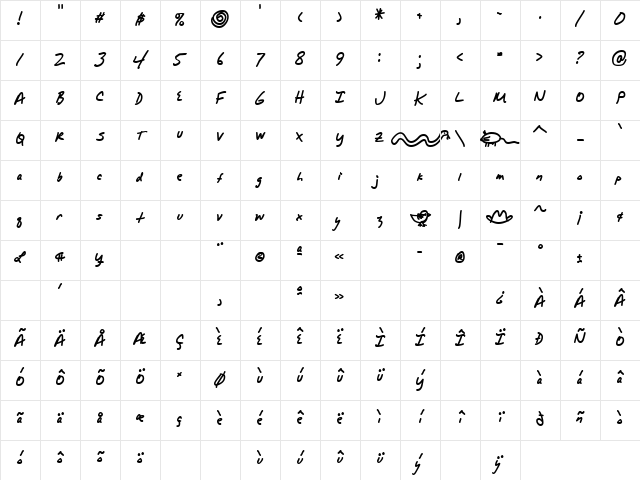 ! " # $ % ' ( ) * + , - . / 0
1 2 3 4 5 6 7 8 9 : ; < = > ? @
A B C D E F G H I J K L M N O P
Q R S T U V W X Y Z \ ^ _ `
a b c d e f g h i j k l m n o p
q r s t u v w x y z | ~ ¡ ¢
£ ¤ ¥ ¨ © ª « - ® ¯ ° ±
´ ¸ º » ¿ À Á Â
Ã Ä Å Æ Ç È É Ê Ë Ì Í Î Ï Ð Ñ Ò
Ó Ô Õ Ö × Ø Ù Ú Û Ü Ý à á â
ã ä å æ ç è é ê ë ì í î ï ð ñ ò
ó ô õ ö ù ú û ü ý ÿ